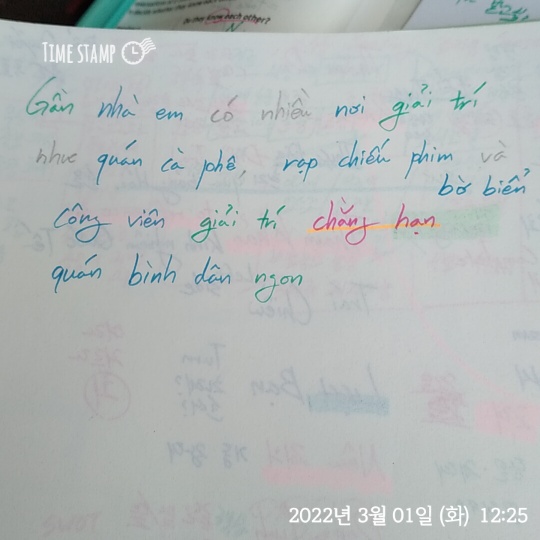 Do they know each other?
TIME STAMP
Gần nhà em có nhiều nơi giải trí
như quán cà phê, rạp chiếu phim và
bờ biển
công viên giải trí chẳng hạn
quán bình dân ngon
2022년 3월 01일 (화) 12:25